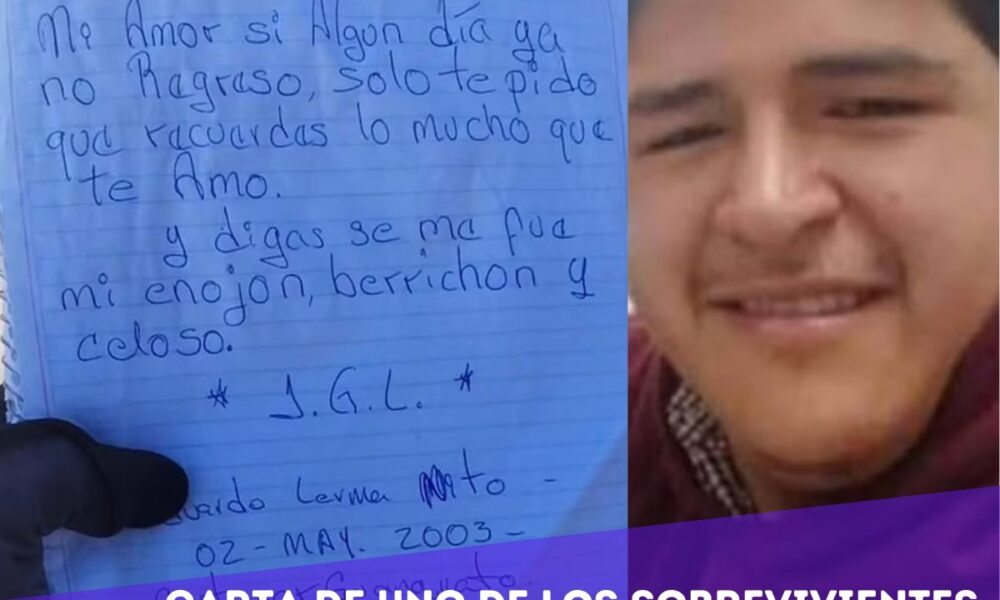 Mi Amor si Algon día ya
no Regreso, solo te pido
que recuerdas lo mucho que
te Amo.
y digas se me fue
mi enojon, berrichon y
celoso.
* J.G.L. *
uardo Lerma
02 - MAY. 2003 -
CARTA DE UNO DE LOS SOBREVIVIENTES